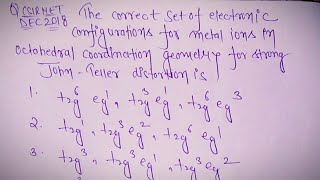 Q CSIRNET The correct set of electronic
DEC 2018 configurations for metal ions in
octohedral coordination geometry for strong
John-Teller distortion is
1. t2g⁶ eg¹, t2g³ eg¹, t2g⁶ eg³
2. t2g¹, t2g³ eg², t2g⁶ eg¹
3. t2g³, t2g³ eg¹, t2g³ eg²